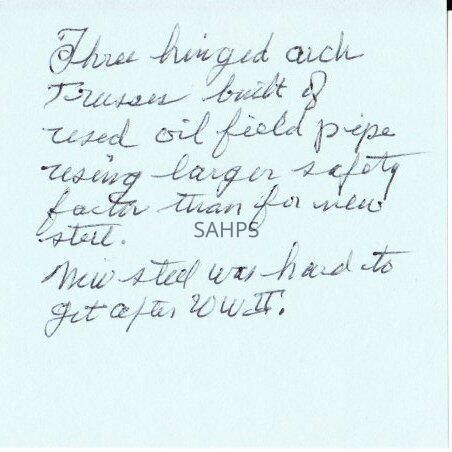 Three hinged arch
Trusses built of
used oil field pipe
using larger safety
factor than for new
steel.
SAHPS
New steel was hard to
get after WW II.